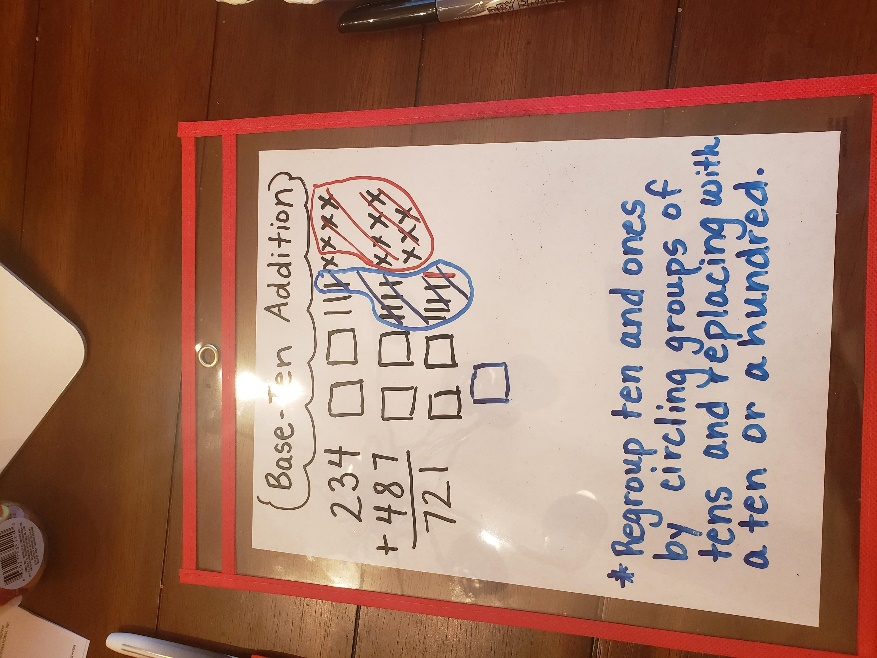 {Base-Ten Addition}
234
+487
721
*Regroup ten and ones
by circling groups of
tens and replacing with
a ten or a hundred.